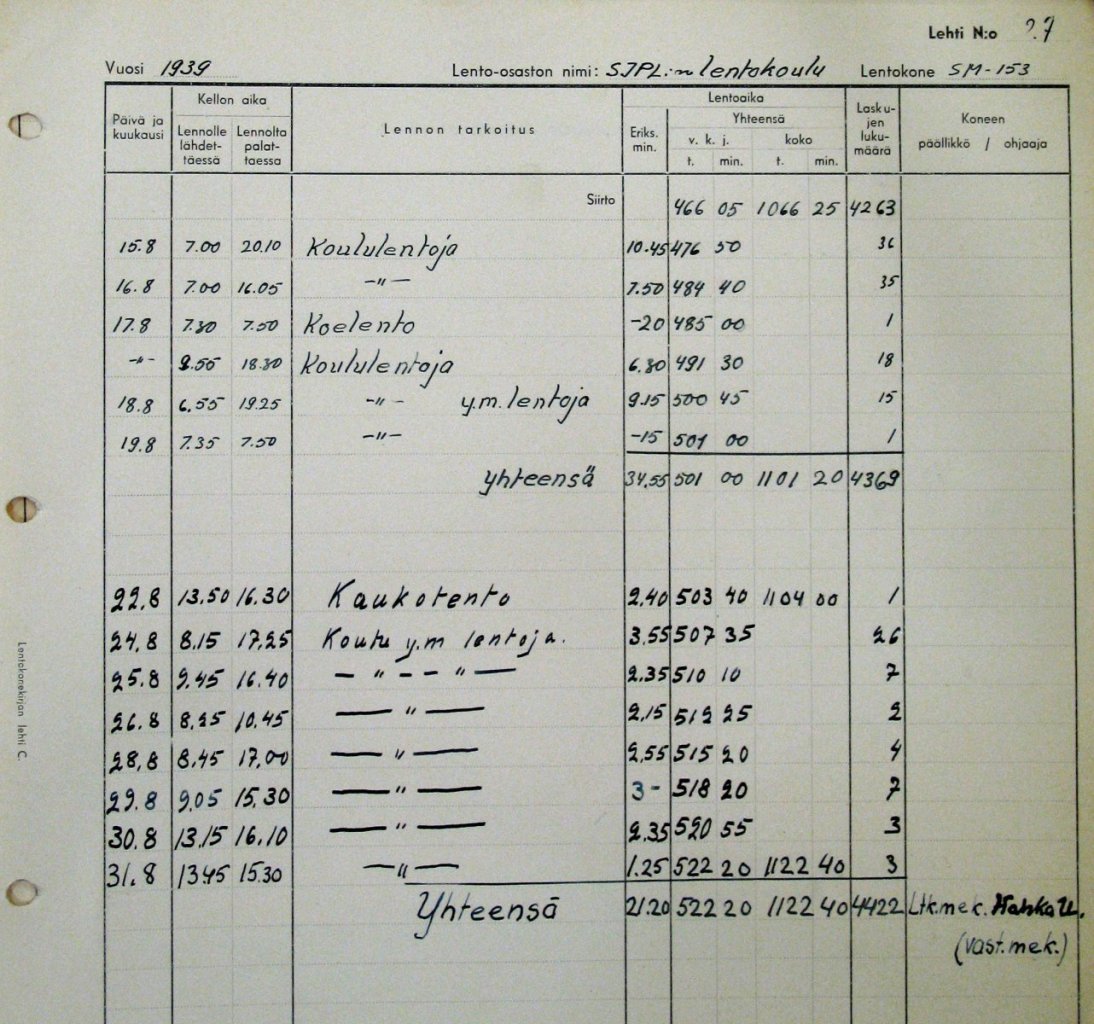 Lehti N:o ?.7
Vuosi 1939 Lento-osaston nimi: SJPL:n lentokoulu Lentokone SM-153
Päivä ja kuukausi Kellon aika Lennolle lähdettäessä Lennolta palattaessa Lennon tarkoitus Lentoaika Eriks. min. Yhteensä v. k. j. t. min. koko t. min. Laskujen lukumäärä Koneen päällikkö / ohjaaja
Siirto 466 05 1066 25 4263
15.8 7.00 20.10 Koululentoja 10.45 476 50 36
16.8 7.00 16.05 -"- 7.50 484 40 35
17.8 7.30 7.50 Koelento -20 485 00 1
-"- 9.55 18.30 Koululentoja 6.30 491 30 18
18.8 6.55 19.25 -"- y.m. lentoja 9.15 500 45 15
19.8 7.35 7.50 -"- -15 501 00 1
yhteensä 34.55 501 00 1101 20 4369
22.8 13.50 16.30 Kaukolento 2.40 503 40 1104 00 1
24.8 8.15 17.25 Koulu y.m lentoja. 3.55 507 35 26
25.8 9.45 16.40 - " - - " - 2.35 510 10 7
26.8 8.25 10.45 - " - 2.15 512 25 2
28.8 8.45 17.00 - " - 2.55 515 20 4
29.8 9.05 15.30 - " - 3- 518 20 7
30.8 13.15 16.10 - " - 2.35 520 55 3
31.8 13.45 15.30 -"- 1.25 522 20 1122 40 3
Yhteensä 21.20 522 20 1122 40 4422 Ltk.mek.
(vast.mek.)
Lentokonekirjan lehti C.